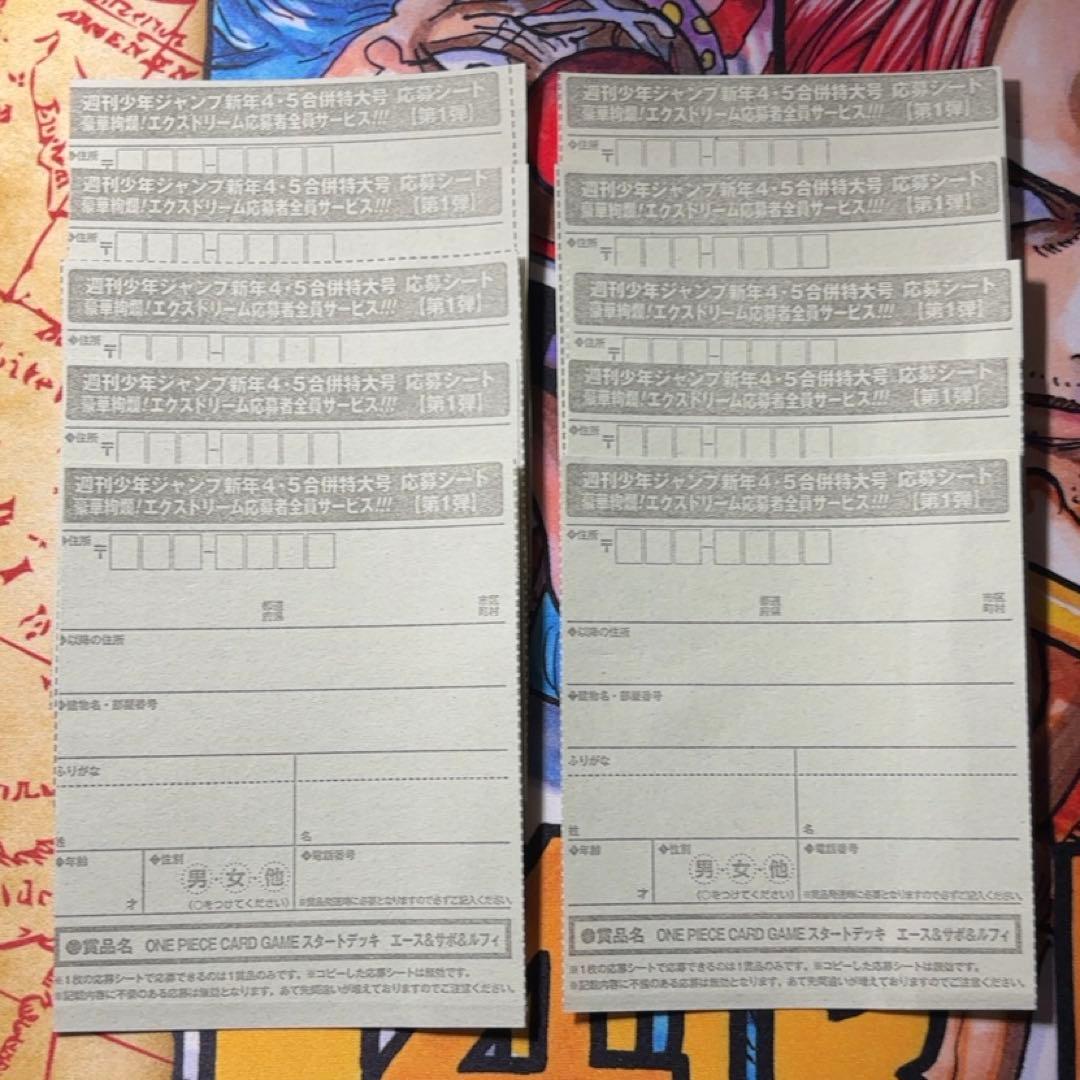 週刊少年ジャンプ新年4・5合併特大号 応募シート
豪華絢爛!エクストリーム応募者全員サービス!!! 【第1弾】
◆住所 〒
週刊少年ジャンプ新年4・5合併特大号 応募シート
豪華絢爛!エクストリーム応募者全員サービス!!! 【第1弾】
◆住所 〒
週刊少年ジャンプ新年4・5合併特大号 応募シート
豪華絢爛!エクストリーム応募者全員サービス!!! 【第1弾】
◆住所 〒
週刊少年ジャンプ新年4・5合併特大号 応募シート
豪華絢爛!エクストリーム応募者全員サービス!!! 【第1弾】
◆住所 〒
週刊少年ジャンプ新年4・5合併特大号 応募シート
豪華絢爛!エクストリーム応募者全員サービス!!! 【第1弾】
◆住所 〒
都道 市区
府県 町村
◆以降の住所
◆建物名・部屋番号
ふりがな
姓 名
◆年齢 ◆性別 ◆電話番号
男・女・他
才 (○をつけてください) ※賞品発送時に必要となりますので必ずご記入ください。
㊝賞品名 ONE PIECE CARD GAME スタートデッキ エース&サボ&ルフィ
※1枚の応募シートで応募できるのは1賞品のみです。※コピーした応募シートは無効です。
※記載内容に不備のある応募は無効となります。あて先間違いが増えておりますのでご注意ください。
週刊少年ジャンプ新年4・5合併特大号 応募シート
豪華絢爛!エクストリーム応募者全員サービス!!! 【第1弾】
◆住所 〒
週刊少年ジャンプ新年4・5合併特大号 応募シート
豪華絢爛!エクストリーム応募者全員サービス!!! 【第1弾】
◆住所 〒
週刊少年ジャンプ新年4・5合併特大号 応募シート
豪華絢爛!エクストリーム応募者全員サービス!!! 【第1弾】
◆住所 〒
週刊少年ジャンプ新年4・5合併特大号 応募シート
豪華絢爛!エクストリーム応募者全員サービス!!! 【第1弾】
◆住所 〒
週刊少年ジャンプ新年4・5合併特大号 応募シート
豪華絢爛!エクストリーム応募者全員サービス!!! 【第1弾】
◆住所 〒
都道 市区
府県 町村
◆以降の住所
◆建物名・部屋番号
ふりがな
姓 名
◆年齢 ◆性別 ◆電話番号
男・女・他
才 (○をつけてください) ※賞品発送時に必要となりますので必ずご記入ください。
賞品名 ONE PIECE CARD GAME スタートデッキ エース&サボ&ルフィ
※1枚の応募シートで応募できるのは1賞品のみです。※コピーした応募シートは無効です。
※記載内容に不備のある応募は無効となります。あて先間違いが増えておりますのでご注意ください。